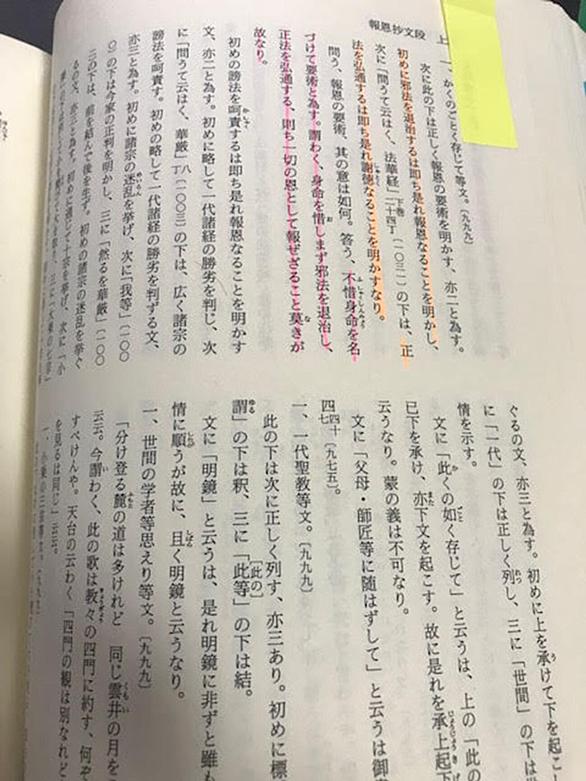 報恩抄文段 上
一、かくのごとく存じて等文。〔九九九〕
次に此の下は正しく報恩の要術を明かす、亦二と為す。
初めに邪法を退治するは即ち是れ報恩なることを明かし、
次に「問うて云はく、法華経」下巻二十四丁(一〇三一)の下は、正
法を弘通するは即ち是れ謝徳なることを明かすなり。
問う、報恩の要術、其の意は如何。答う、不惜身命を名
づけて要術と為す。謂わく、身命を惜しまず邪法を退治し、
正法を弘通する、則ち一切の恩として報ぜざること莫きが
故なり。
初めの謗法を呵責するは即ち是れ報恩なることを明かす
文、亦二と為す。初めに略して一代諸経の勝劣を判じ、次
に「問うて云はく、華厳」八丁(一〇〇三)の下は、広く諸宗の
謗法を呵責す。初めの略して一代諸経の勝劣を判ずる文、
亦三と為す。初めに諸宗の迷乱を挙げ、次に「我等」(一〇〇
〇)の下は今家の正判を明かし、三に「然るを華厳」(一〇〇
三)の下は、前を結んで後を生ず。初めの諸宗の迷乱を挙ぐ
るの文、亦三と為す。初めに通じて十宗を挙げ、次に「小
ぐるの文、亦三と為す。初めに上を承けて下を起こし
に「一代」の下は正しく列し、三に「世間」の下は
情を示す。
文に「此くの如く存じて」と云うは、上の「此の
已下を承け、亦下文を起こす。故に是れを承上起下
云うなり。蒙の義は不可なり。
文に「父母・師匠等に随はずして」と云うは御書
四十四七〔九七五〕。
一、一代聖教等文。〔九九九〕
此の下は次に正しく列す、亦三あり。初めに標
謂」の下は釈、三に「此等」の下は結。
文に「明鏡」と云うは、是れ明鏡に非ずと雖も
情に順うが故に、且く明鏡と云うなり。
一、世間の学者等思えり等文。〔九九九〕
「分け登る麓の道は多けれど 同じ雲井の月を
云云。今謂わく、此の歌は教々の四門に約す、何ぞ
すべけんや。天台の云わく「四門の観は別なれど
を見るは同じ」云云。